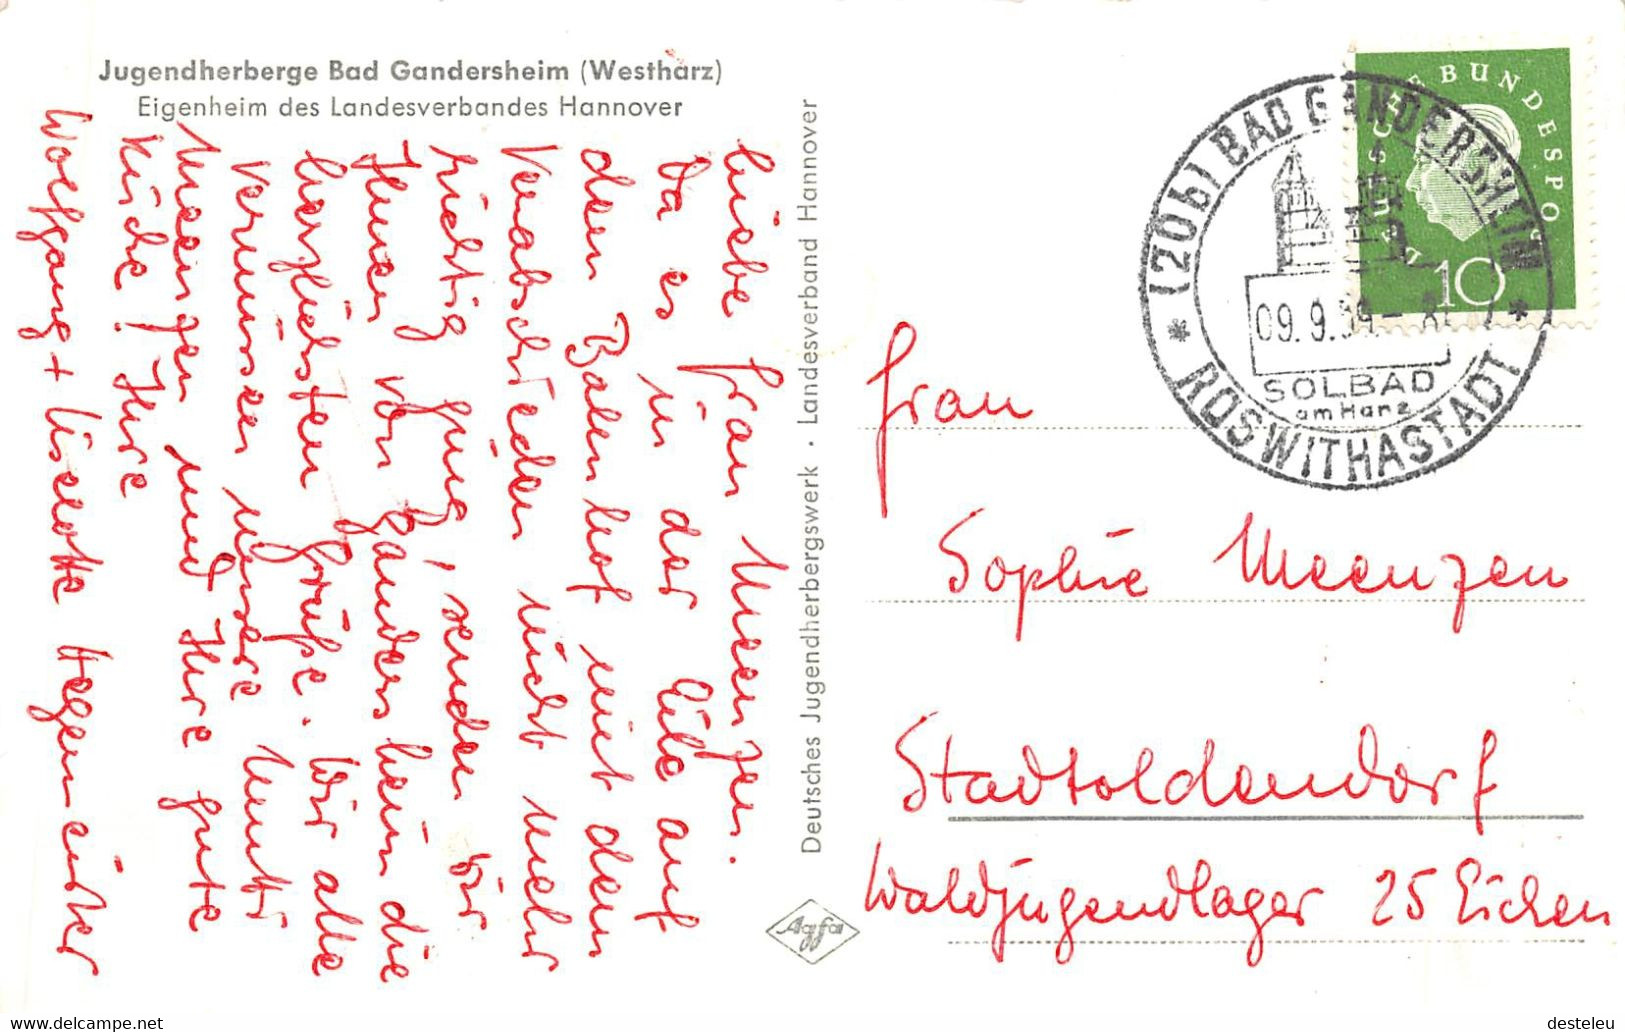 Jugendherberge Bad Gandersheim (Westharz)
Eigenheim des Landesverbandes Hannover
Liebe Frau Meenzen.
Da es in der Eile auf
dem Bahnhof mit dem
Verabschieden nicht mehr
richtig ging, senden wir
Ihnen von Gandersheim die
herzlichsten Grüße. Wir alle
vermissen unsere Mutti
Meenzen und Ihre gute
Küche! Ihre
Wolfgang + Liselotte
Deutsches Jugendherbergswerk · Landesverband Hannover
Agfa
DEUTSCHE BUNDESPOST
10
(20b) BAD GANDERSHEIM
09.9.59
SOLBAD
am Harz
* ROSWITHASTADT *
Frau
Sophie Meenzen
Stadtoldendorf
Waldjugendlager 25 Eichen
www.delcampe.net
desteleu